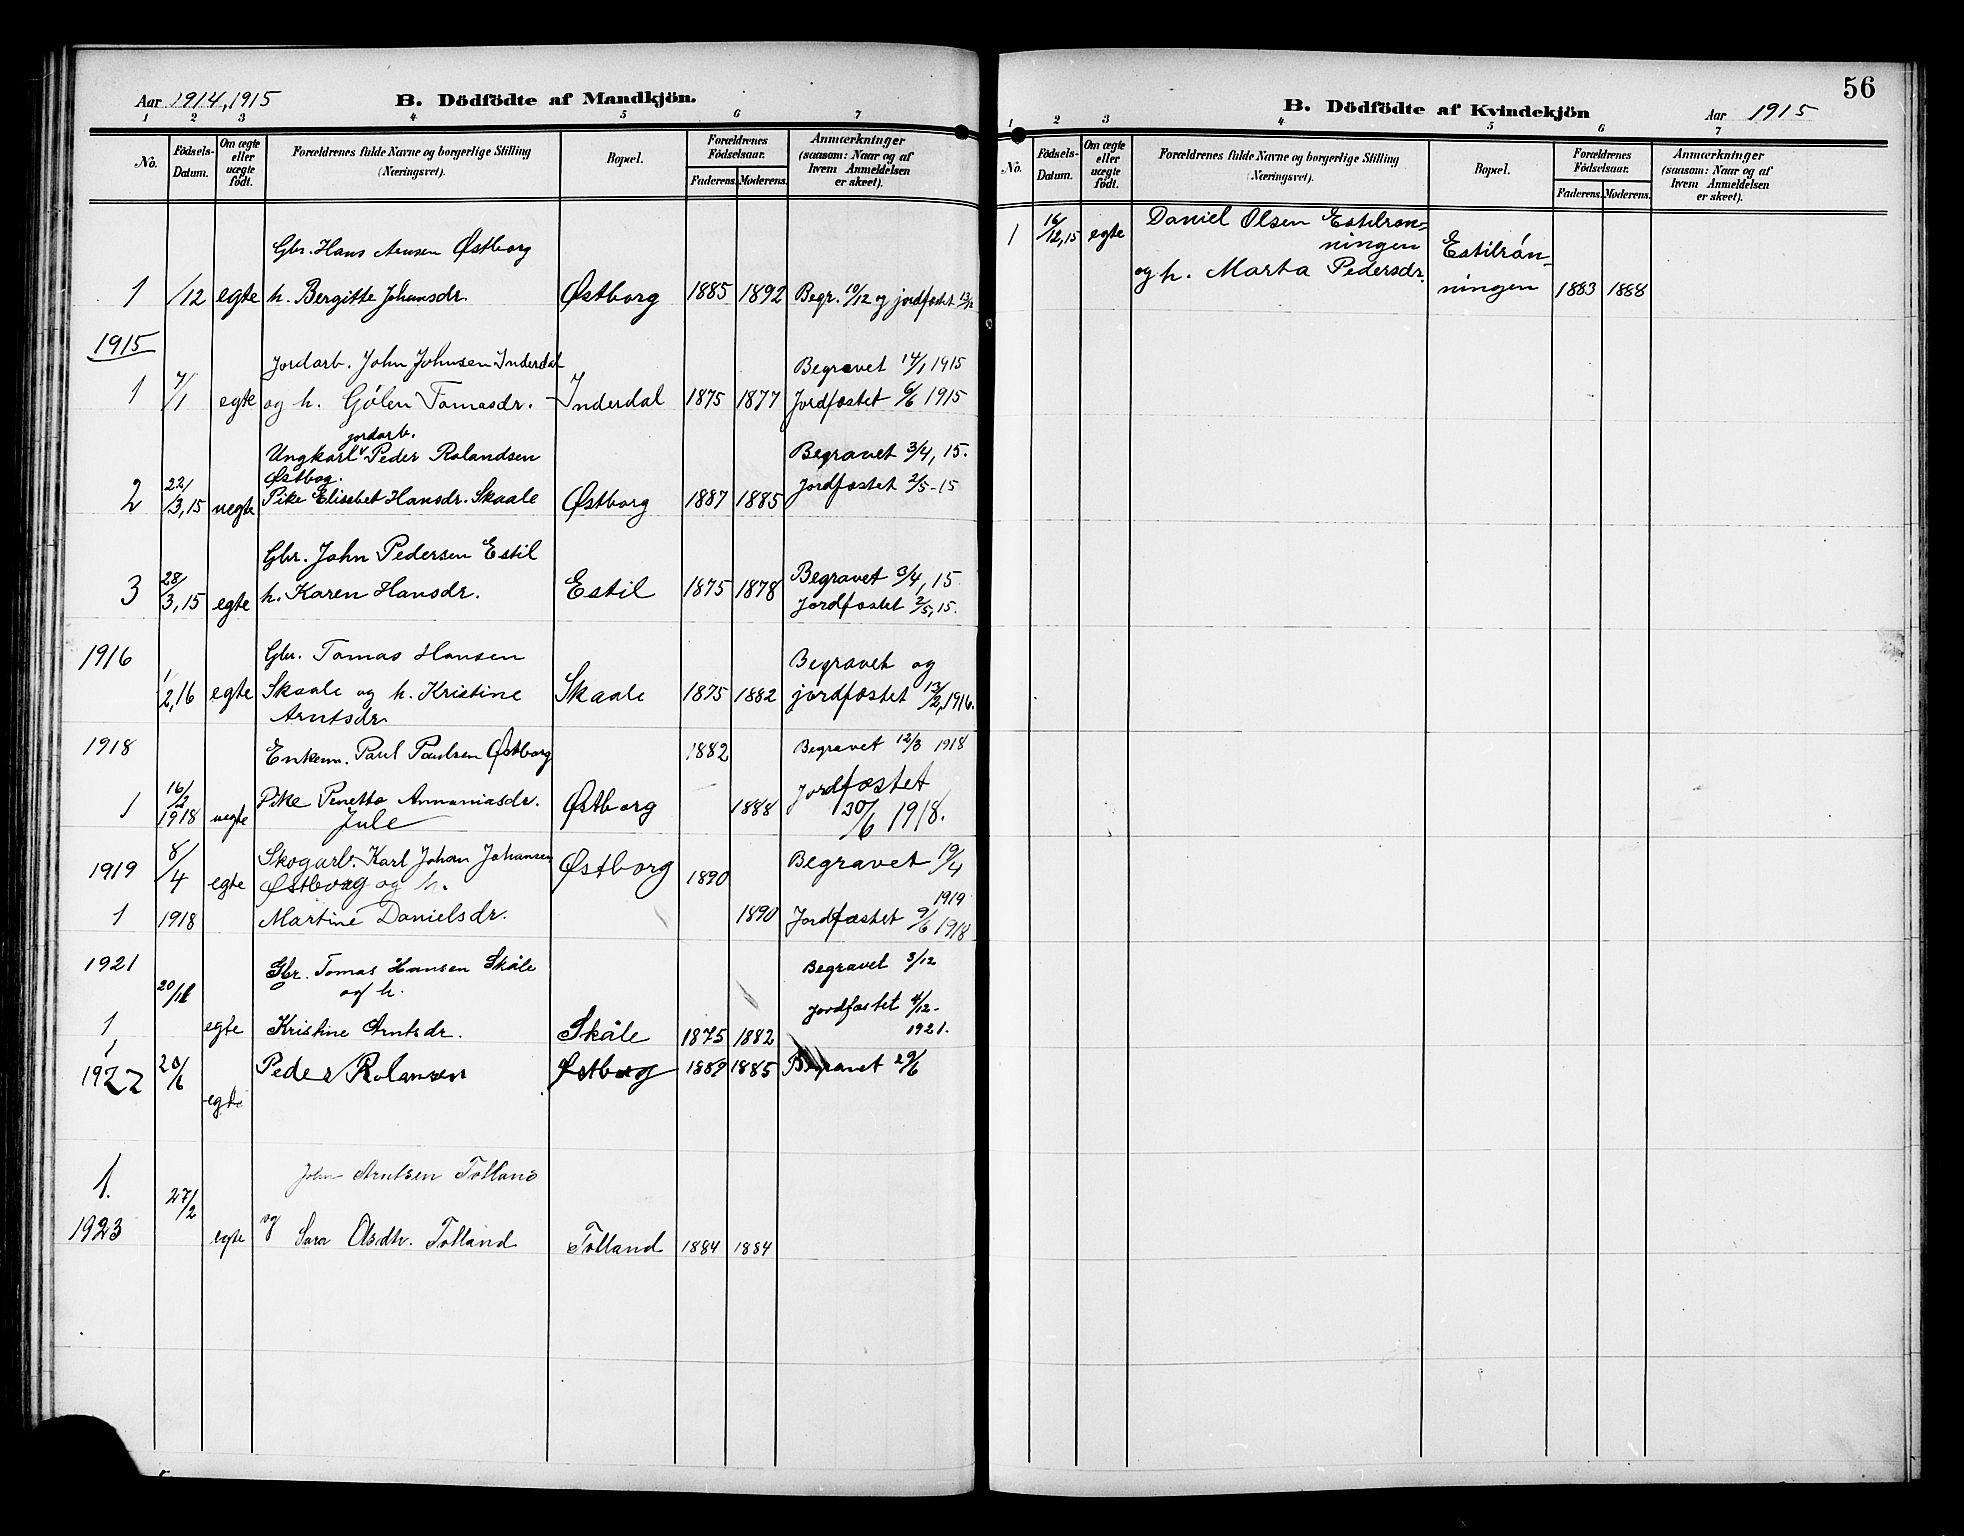 Aar 1914, 1915
B. Dödfödte af Mandkjön.
1 2 3 4 5 6 7
No.
Födsels-Datum.
Om ægte eller uægte födt.
Forældrenes fulde Navne og borgerlige Stilling (Næringsvei).
Bopæl.
Forældrenes Födselsaar.
Faderens. Moderens.
Anmærkninger (saasom: Naar og af hvem Anmeldelsen er skeet).
Gbr. Hans Arnsen Østborg
1 /12 egte h. Bergitte Johansdr. Østborg 1885 1892 Begr. 10/12 og jordfæstet 13/12
1915
Jordarb. John Johnsen Inderdal Begravet 14/1 1915
1 7/1 egte og h. Gølen Tomasdr. Inderdal 1875 1877 Jordfæstet 6/6 1915
jordarb.
Ungkarl Peder Rolandsen Begravet 3/4, 15.
Østbog. Jordfæstet 2/5-15
2 22/3,15 uegte Pike Elisabet Hansdr. Skaale Østborg 1887 1885
Gbr. John Pedersen Estil Begravet 3/4, 15
3 28/3,15 egte h. Karen Hansdr. Estil 1875 1878 Jordfæstet 2/5, 15.
1916 Gbr. Tomas Hansen Begravet og
1/2,16 egte Skaale og h. Kristine Skaale 1875 1882 jordfæstet 13/2, 1916.
Arntsdr
1918 Enkem. Paul Paulsen Østborg 1882 Begravet 12/3 1918
1 16/2 1918 uegte Pike Penetta Annaniasdr. Østborg 1888 Jordfæstet
Jule 30/6 1918.
1919 8/4 egte Skogarb. Karl Johan Johansen Østborg 1890 Begravet 19/4
Østborg og h. 1919
1 1918 Martine Danielsdr. 1890 Jordfæstet 9/6 1918
1921 20/11 Gbr. Tomas Hansen Skåle Begravet 3/12
og h. Jordfæstet 4/12-
1 egte Kristine Arntsdr. Skåle 1875 1882 1921.
1922 20/6 Peder Rolansen Østborg 1889 1885 Begravet 29/6
egte
1. 27/2 John Arntsen Tolland
1923 egte og Sara Olsdtr. Tolland Tolland 1884 1884
56
B. Dödfödte af Kvindekjön
Aar 1915
1 2 3 4 5 6 7
No.
Födsels-Datum.
Om ægte eller uægte födt.
Forældrenes fulde Navne og borgerlige Stilling (Næringsvei).
Bopæl.
Forældrenes Födselsaar.
Faderens. Moderens.
Anmærkninger (saasom: Naar og af hvem Anmeldelsen er skeet).
1 16/12,15 egte Daniel Olsen Estilrøn-
ningen Estilrøn-
og h. Marta Pedersdr. ningen 1883 1888